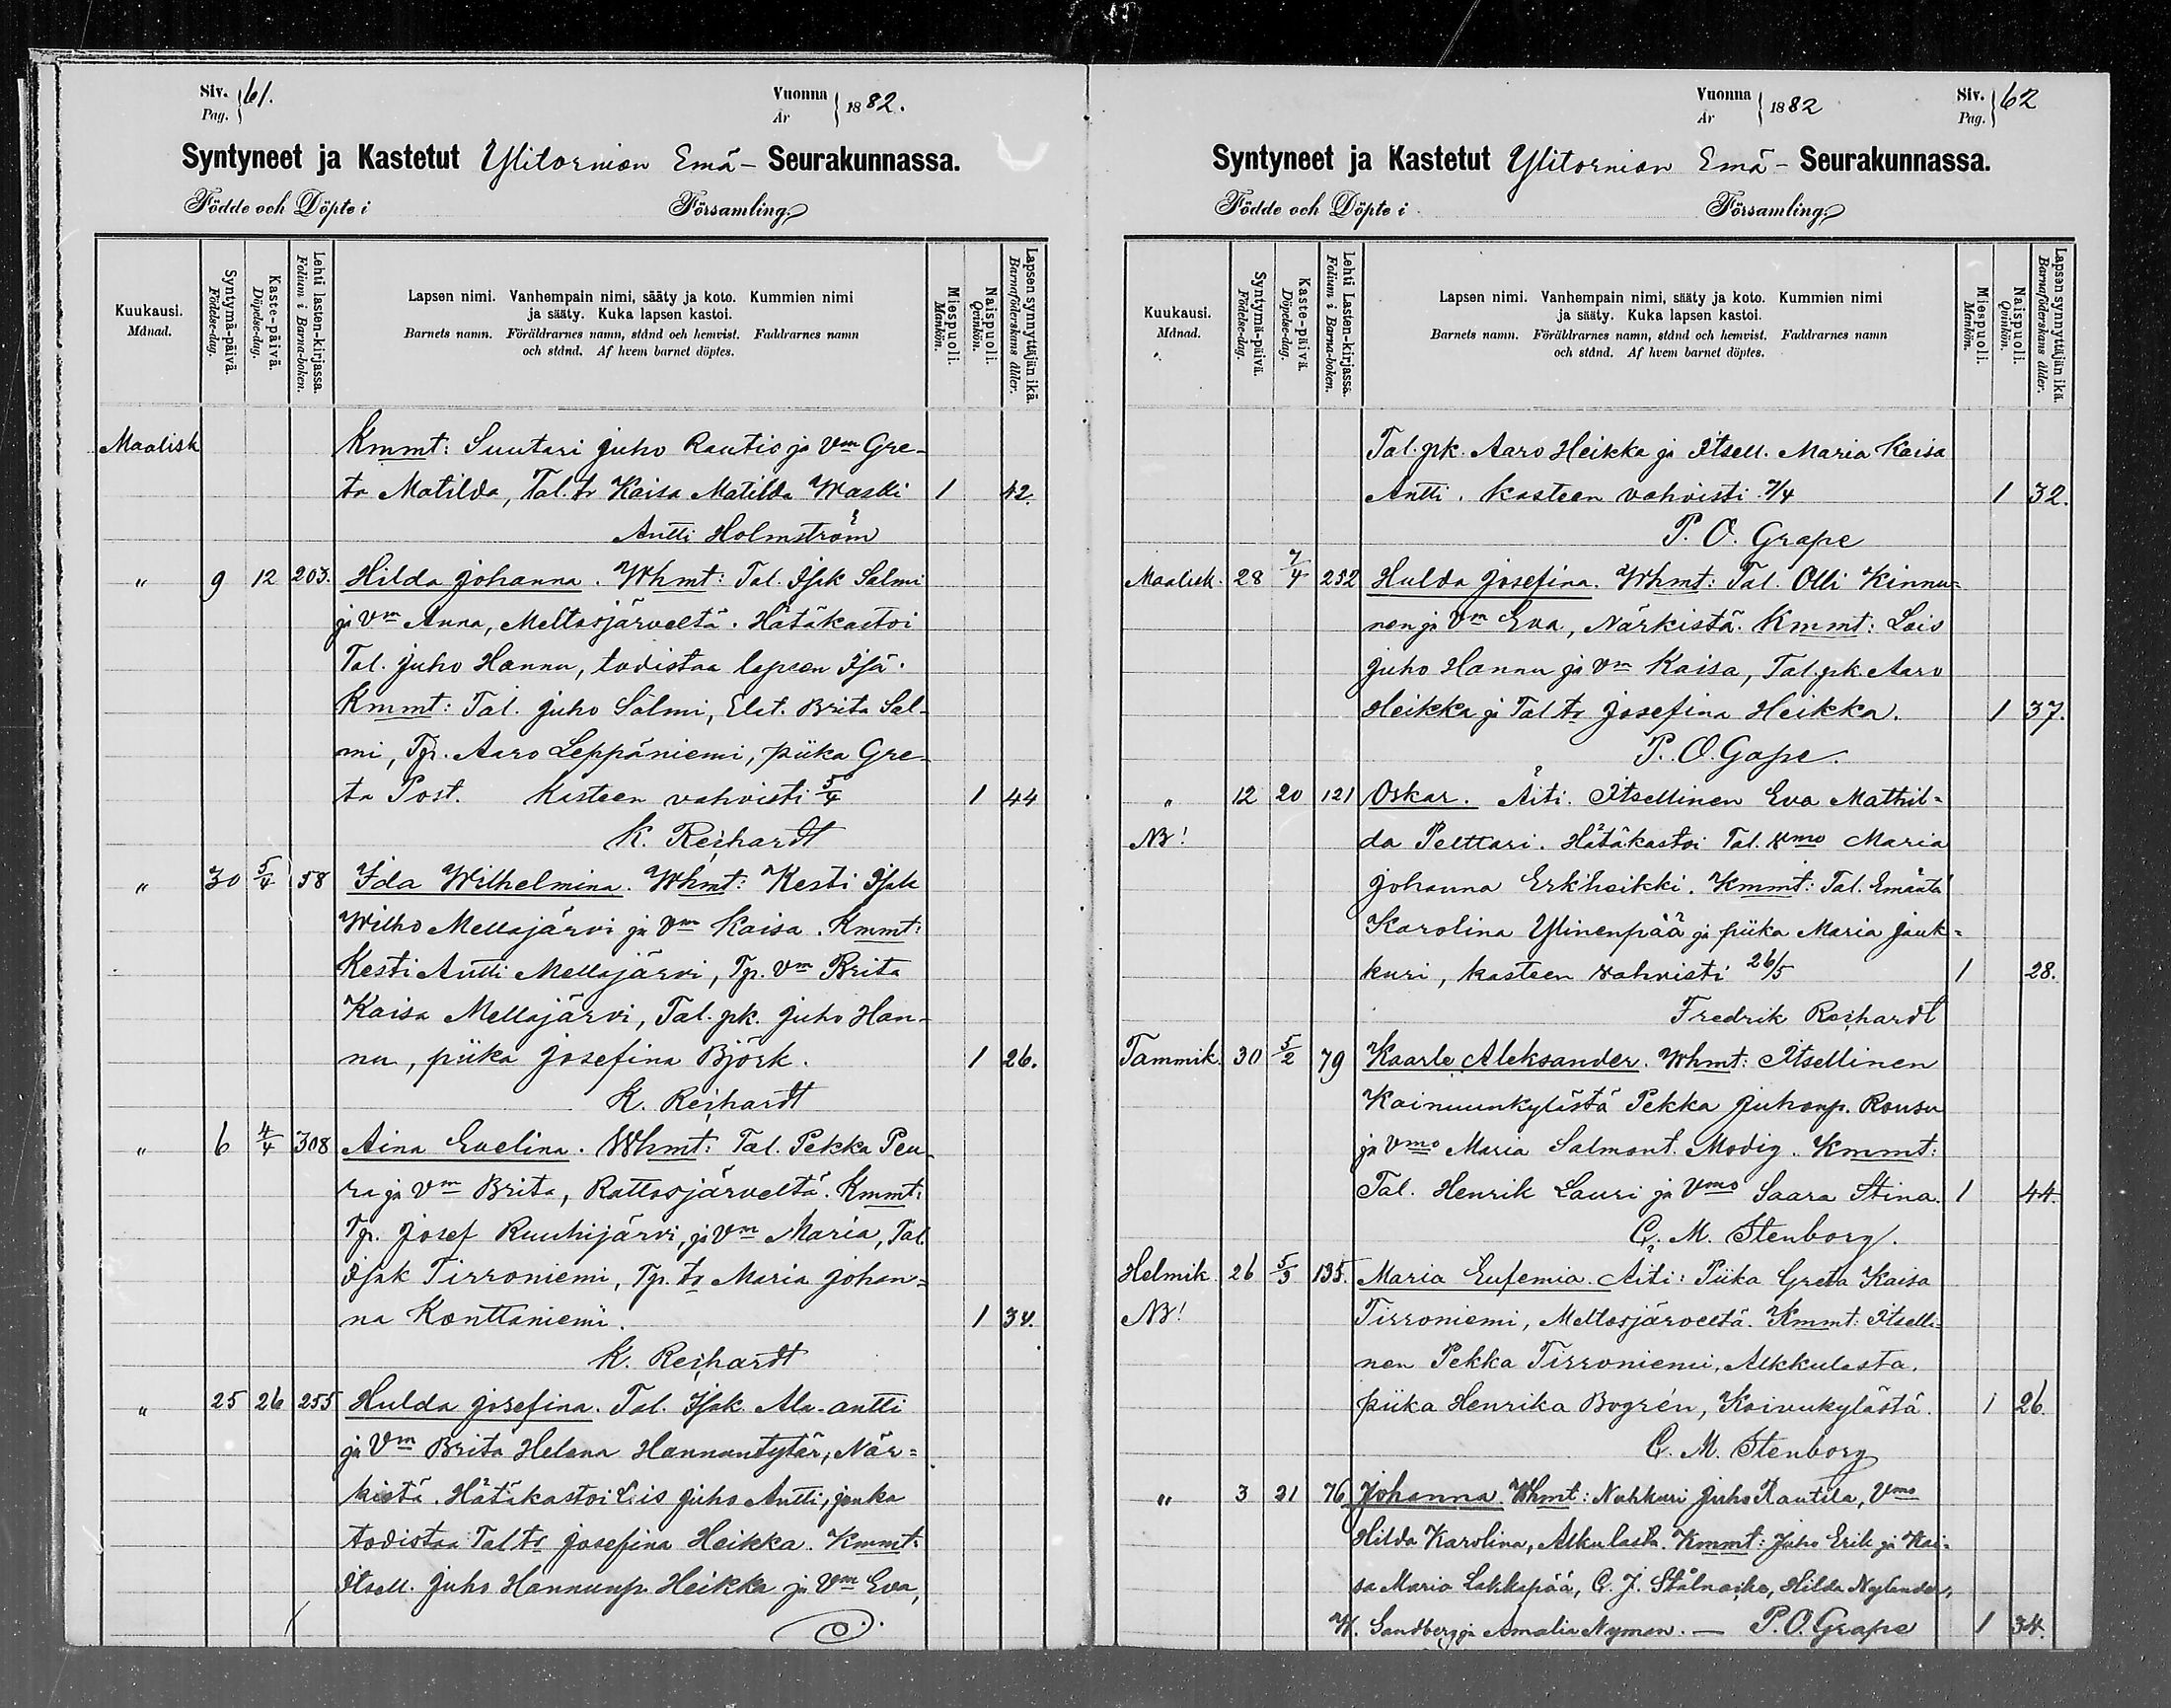 Siv. Pag. 61.
Vuonna År 1882.
Syntyneet ja Kastetut Ylitornion Emä- Seurakunnassa.
Födde och Döpte i Församling.
Kuukausi. Månad.
Syntymä-päivä. Födelse-dag.
Kaste-päivä. Döpelse-dag.
Lehti lasten-kirjassa. Folium i Barna-boken.
Lapsen nimi. Vanhempain nimi, sääty ja koto. Kummien nimi
ja sääty. Kuka lapsen kastoi.
Barnets namn. Föräldrarnes namn, stånd och hemvist. Faddrarnes namn
och stånd. Af hvem barnet döptes.
Miespuoli. Mankön.
Naispuoli. Qvinkön.
Lapsen synnyttäjän ikä. Barnaföderskans ålder.
Maalisk Kmmt: Suutari Juho Rautio ja Vm Gre-
ta Matilda, Tal. tr Kaisa Matilda Waski 1 42.
Antti Holmström
" 9 12 203. Hilda Johanna. Whmt: Tal. Isak Salmi
ja Vm Anna, Meltosjärveltä. Hätäkastoi
Tal. Juho Hannu, todistaa lapsen Isä.
Kmmt: Tal. Juho Salmi, Elät. Brita Sal-
mi, Tp. Aaro Leppäniemi, piika Gre-
ta Post. Kasteen vahvisti 5/4 1 44
K. Reihardt
" 30 5/4 58 Ida Wilhelmina. Whmt: Kesti Isak
Wilho Mellajärvi ja Vm Kaisa. Kmmt:
Kesti Antti Mellajärvi, Tp. Vm Brita
Kaisa Mellajärvi, Tal. pk. Juho Han-
nu, piika Josefina Björk. 1 26.
K. Reihardt
" 6 4/4 308 Aina Evelina. Whmt: Tal. Pekka Peu-
ra ja Vm Brita, Rattosjärveltä. Kmmt:
Tp. Josef Ruuhijärvi, ja Vm Maria, Tal.
Isak Tirroniemi, Tp. tr Maria Johan=
na Konttaniemi. 1 34.
K. Reihardt
" 25 26 255 Hulda Josefina. Tal. Isak Ala-antti
ja Vm Brita Helena Hannuntytär, När=
kistä. Hätäkastoi Juho Antti, jonka
todistaa Tal tr Josefina Heikka. Kmmt:
Itsell. Juho Hannunp. Heikka ja Vm Eva,
Vuonna År 1882
Siv. Pag. 62
Syntyneet ja Kastetut Ylitornion Emä- Seurakunnassa.
Födde och Döpte i Församling.
Kuukausi. Månad.
Syntymä-päivä. Födelse-dag.
Kaste-päivä. Döpelse-dag.
Lehti Lasten-kirjassa. Folium i Barna-boken.
Lapsen nimi. Vanhempain nimi, sääty ja koto. Kummien nimi
ja sääty. Kuka lapsen kastoi.
Barnets namn. Föräldrarnes namn, stånd och hemvist. Faddrarnes namn
och stånd. Af hvem barnet döptes.
Miespuoli. Mankön.
Naispuoli. Qvinkön.
Lapsen synnyttäjän ikä. Barnaföderskans ålder.
Tal. pk. Aaro Heikka ja Itsell. Maria Kaisa
Antti. Kasteen vahvisti 7/4 1 32.
P. O. Grape
Maalisk. 28 7/4 252 Hulda Josefina. Whmt: Tal. Olli Kinnu=
nen ja Vm Eva, Närkistä. Kmmt: Lois
Juho Hannu ja Vm Kaisa, Tal. pk. Aaro
Heikka ja Tal tr Josefina Heikka. 1 37.
P. O. Gape.
" 12 20 121 Oskar. Äiti. Itsellinen Eva Mathil=
NB! da Pelttari. Hätäkastoi Tal. Vmo Maria
Johanna Erkheikki. Kmmt: Tal. Emäntä
Karolina Ylinenpää ja piika Maria Jauk=
kuri, kasteen vahvisti 26/5 1 28.
Fredrik Reihardt
Tammik. 30 5/2 79 Kaarle Aleksander. Whmt: Itsellinen
Kainuunkylästä Pekka Juhonp. Rousu
ja Vmo Maria Salmont. Modig. Kmmt:
Tal. Henrik Lauri ja Vmo Saara Stina. 1 44.
C. M. Stenborg.
Helmik. 26 5/3 135. Maria Eufemia. Äiti: Piika Greta Kaisa
NB! Tirroniemi, Meltosjärveltä. Kmmt: Itselli=
nen Pekka Tirroniemi, Alkkulasta.
piika Henrika Bogrén, Koivukylästä. 1 26.
C. M. Stenborg
" 3 21 76 Johanna. Whmt: Nahkuri Juho Rautila, Vmo
Hilda Karolina, Alkulasta. Kmmt: Juho Erik ja Kai-
sa Maria Lakkapää, C. J. Stålnacke, Hilda Nylander,
W. Sandberg ja Amalia Nyman. — P. O. Grape 1 34.